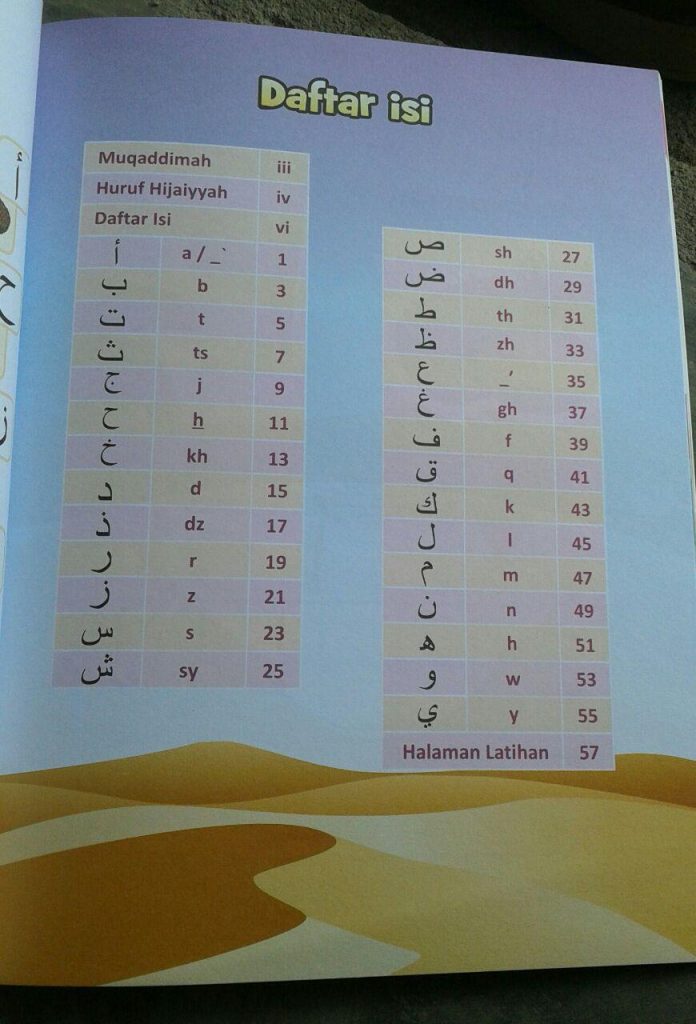 Daftar isi
Muqaddimah iii
Huruf Hijaiyyah iv
Daftar Isi vi
أ a / _` 1
ب b 3
ت t 5
ث ts 7
ج j 9
ح h 11
خ kh 13
د d 15
ذ dz 17
ر r 19
ز z 21
س s 23
ش sy 25
ص sh 27
ض dh 29
ط th 31
ظ zh 33
ع _’ 35
غ gh 37
ف f 39
ق q 41
ك k 43
ل l 45
م m 47
ن n 49
ه h 51
و w 53
ي y 55
Halaman Latihan 57